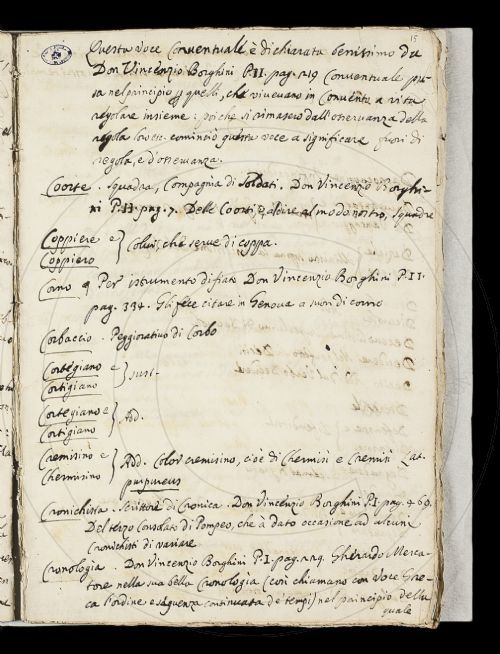 15
Questa voce Conventuale è dichiarata benissimo da
Don Vincenzio Borghini P. II. pag. 219 Conventuale pre-
sa nel principio quelli, che vivevano in Convento a vita
regolare insieme: poiche si rimasero dall'osservanza della
regola loro etc. cominciò questa voce a significare fuori di
regola, e d'osservanza.
Coorte. Squadra, Compagnia di Soldati. Don Vincenzio Borghi-
ni P. II. pag. 7. Delle Coorti, e, a dire al modo nostro, Squadre
Coppiere e
Coppiero } Colui, che serve di coppa.
Corno Per istrumento di fiato Don Vincenzio Borghini P. II.
pag. 334. Gli fece citare in Genova a suon di corno
Corbaccio. Peggiorativo di Corbo
Cortegiano e
Cortigiano } sust.
Cortegiano e
Cortigiano } Ad.
Cremisino e
Chermisino } Add. Color cremisino, cioè di Chermisi e Cremisi Lat.
purpureus
Cronichista. Scrittore di Cronica. Don Vincenzio Borghini P. I. pag. 469.
Del terzo Consolato di Pompeo, che à dato occasione ad alcuni
Cronichisti di variare
Cronologia. Don Vincenzio Borghini P. I. pag. 229. Gherardo Merca-
tore nella sua bella Cronologia (così chiamano con voce Gre-
ca l'ordine e seguenza continuata de' tempi) nel principio della
quale